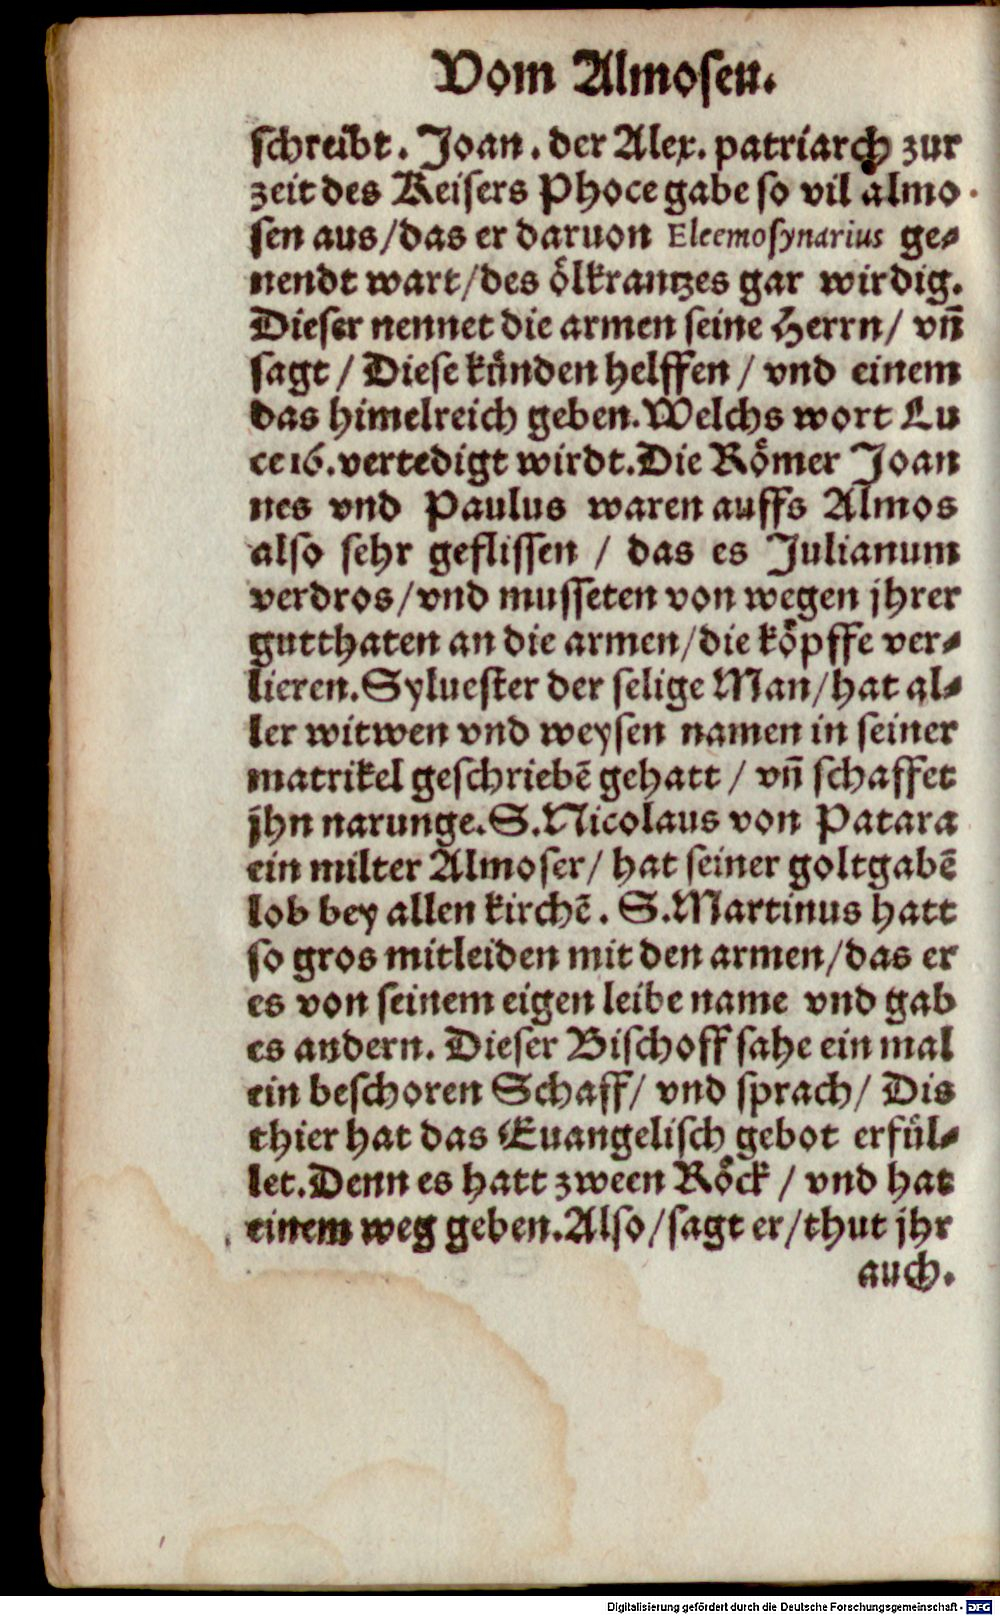 Vom Almosen.
schreibt. Joan. der Alex. patriarch zur
zeit des Keisers Phoce gabe so vil almo
sen aus/das er daruon Eleemosynarius ge-
nendt wart/des ölkrantzes gar wirdig.
Dieser nennet die armen seine Herrn/ vn̄
sagt / Diese künden helffen / vnd einem
das himelreich geben. Welchs wort Lu
ce 16. vertedigt wirdt. Die Römer Joan
nes vnd Paulus waren auffs Almos
also sehr geflissen / das es Julianum
verdros/vnd musseten von wegen jhrer
gutthaten an die armen/die köpffe ver-
lieren. Syluester der selige Man/hat al-
ler witwen vnd weysen namen in seiner
matrikel geschriebē gehatt / vn̄ schaffet
jhn narunge. S. Nicolaus von Patara
ein milter Almoser/ hat seiner goltgabē
lob bey allen kirchē. S. Martinus hatt
so gros mitleiden mit den armen/das er
es von seinem eigen leibe name vnd gab
es andern. Dieser Bischoff sahe ein mal
ein beschoren Schaff/ vnd sprach/ Dis
thier hat das Euangelisch gebot erfül-
let. Denn es hatt zween Röck / vnd hat
einem weg geben. Also/sagt er/thut jhr
auch.
Digitalisierung gefördert durch die Deutsche Forschungsgemeinschaft - DFG